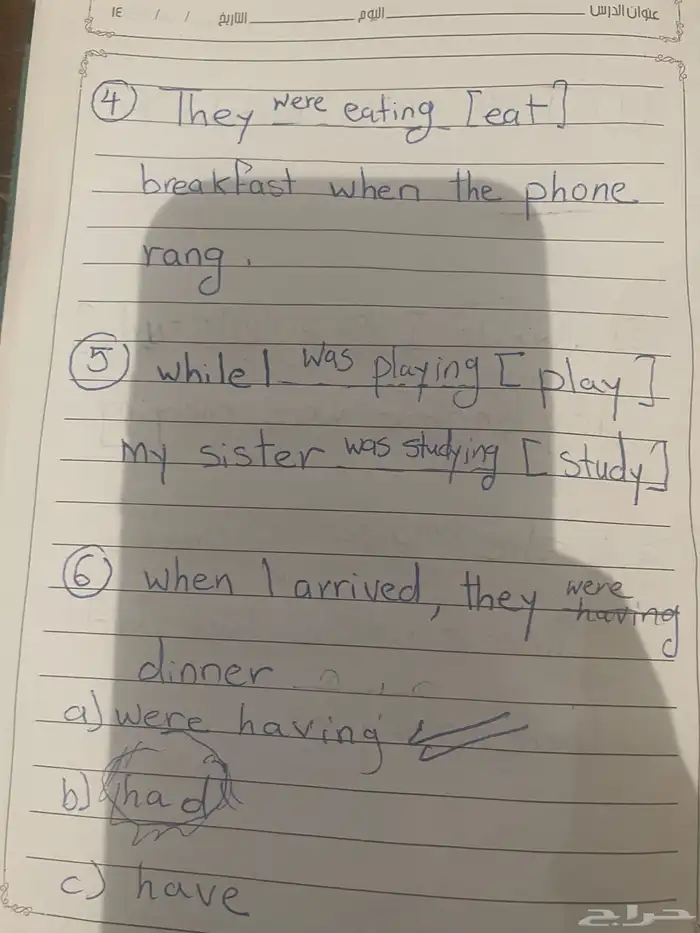 عنوان الدرس اليوم التاريخ / / ١٤
4 They were eating [eat]
breakfast when the phone
rang.
5 while I was playing [play]
My sister was studying [study]
6 when I arrived, they were having
dinner
a) were having
b) had
c) have
حراج